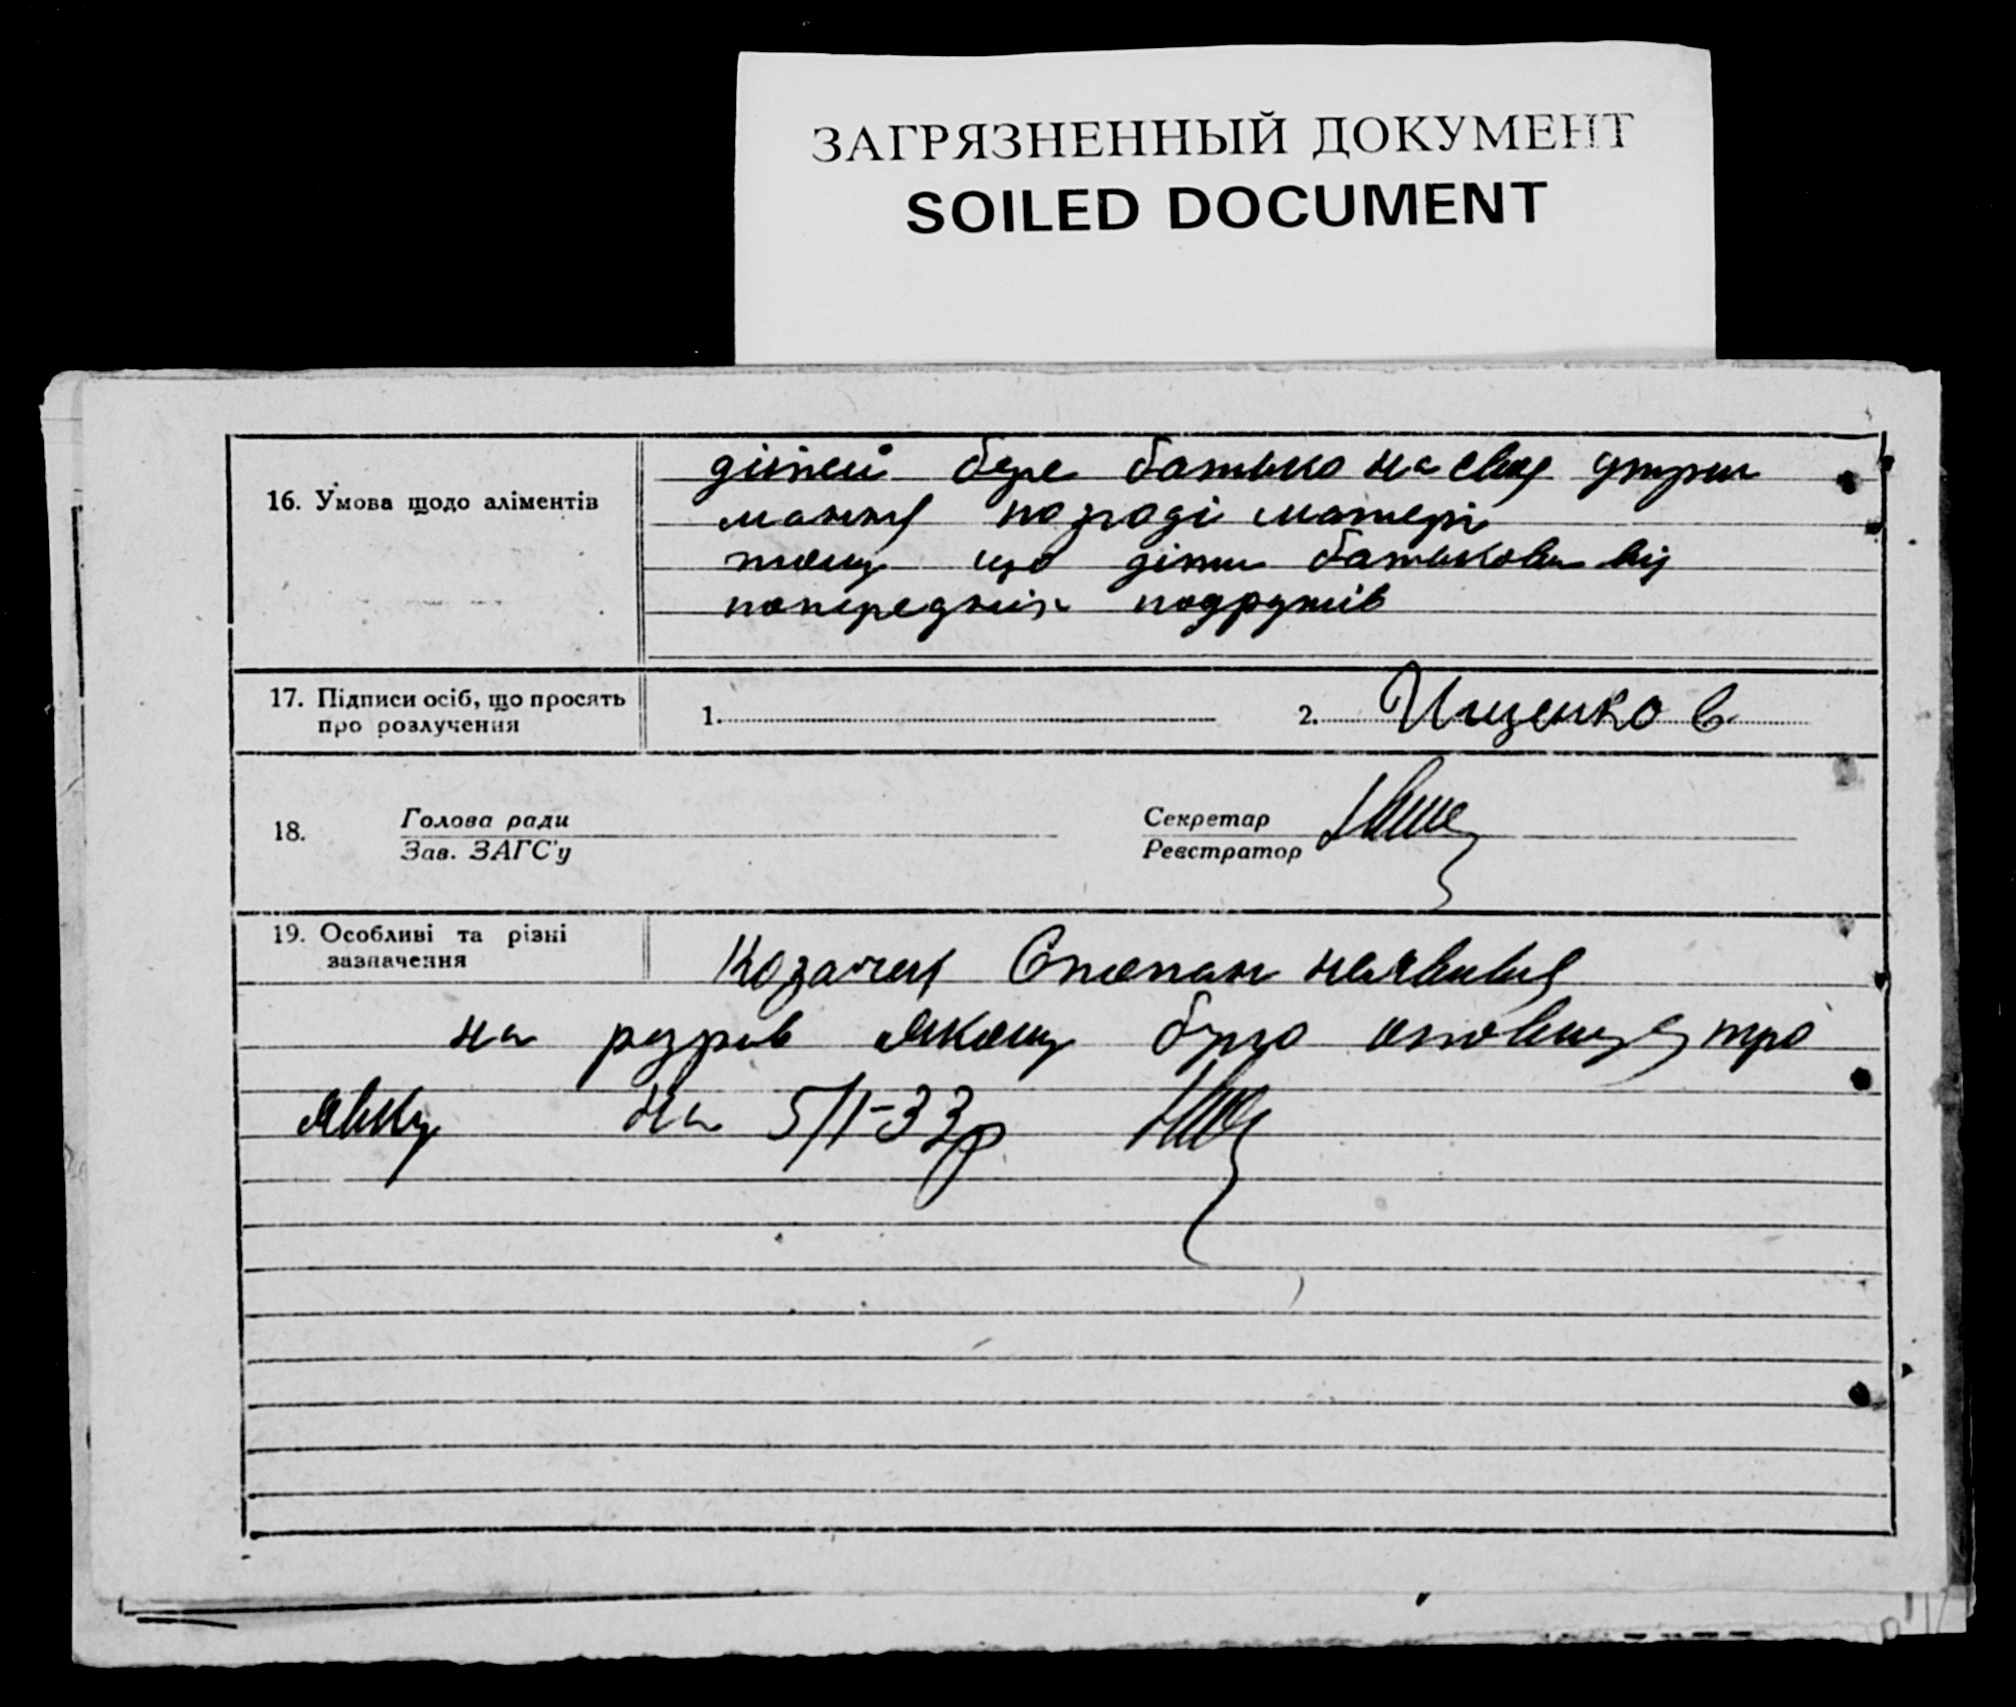 ЗАГРЯЗНЕННЫЙ ДОКУМЕНТ
SOILED DOCUMENT
16. Умова щодо аліментів
дітей бере батько на своє утри
мання по згоді матері
тому що діти батькови від
попередніх подружів
17. Підписи осіб, що просять
про розлучення
1. 2. Ищенко В
18. Голова ради Секретар
Зав. ЗАГС'у Реєстратор
19. Особливі та різні
зазначення
Степан неявився
на розрив якому було про
явку на 5/I-33р